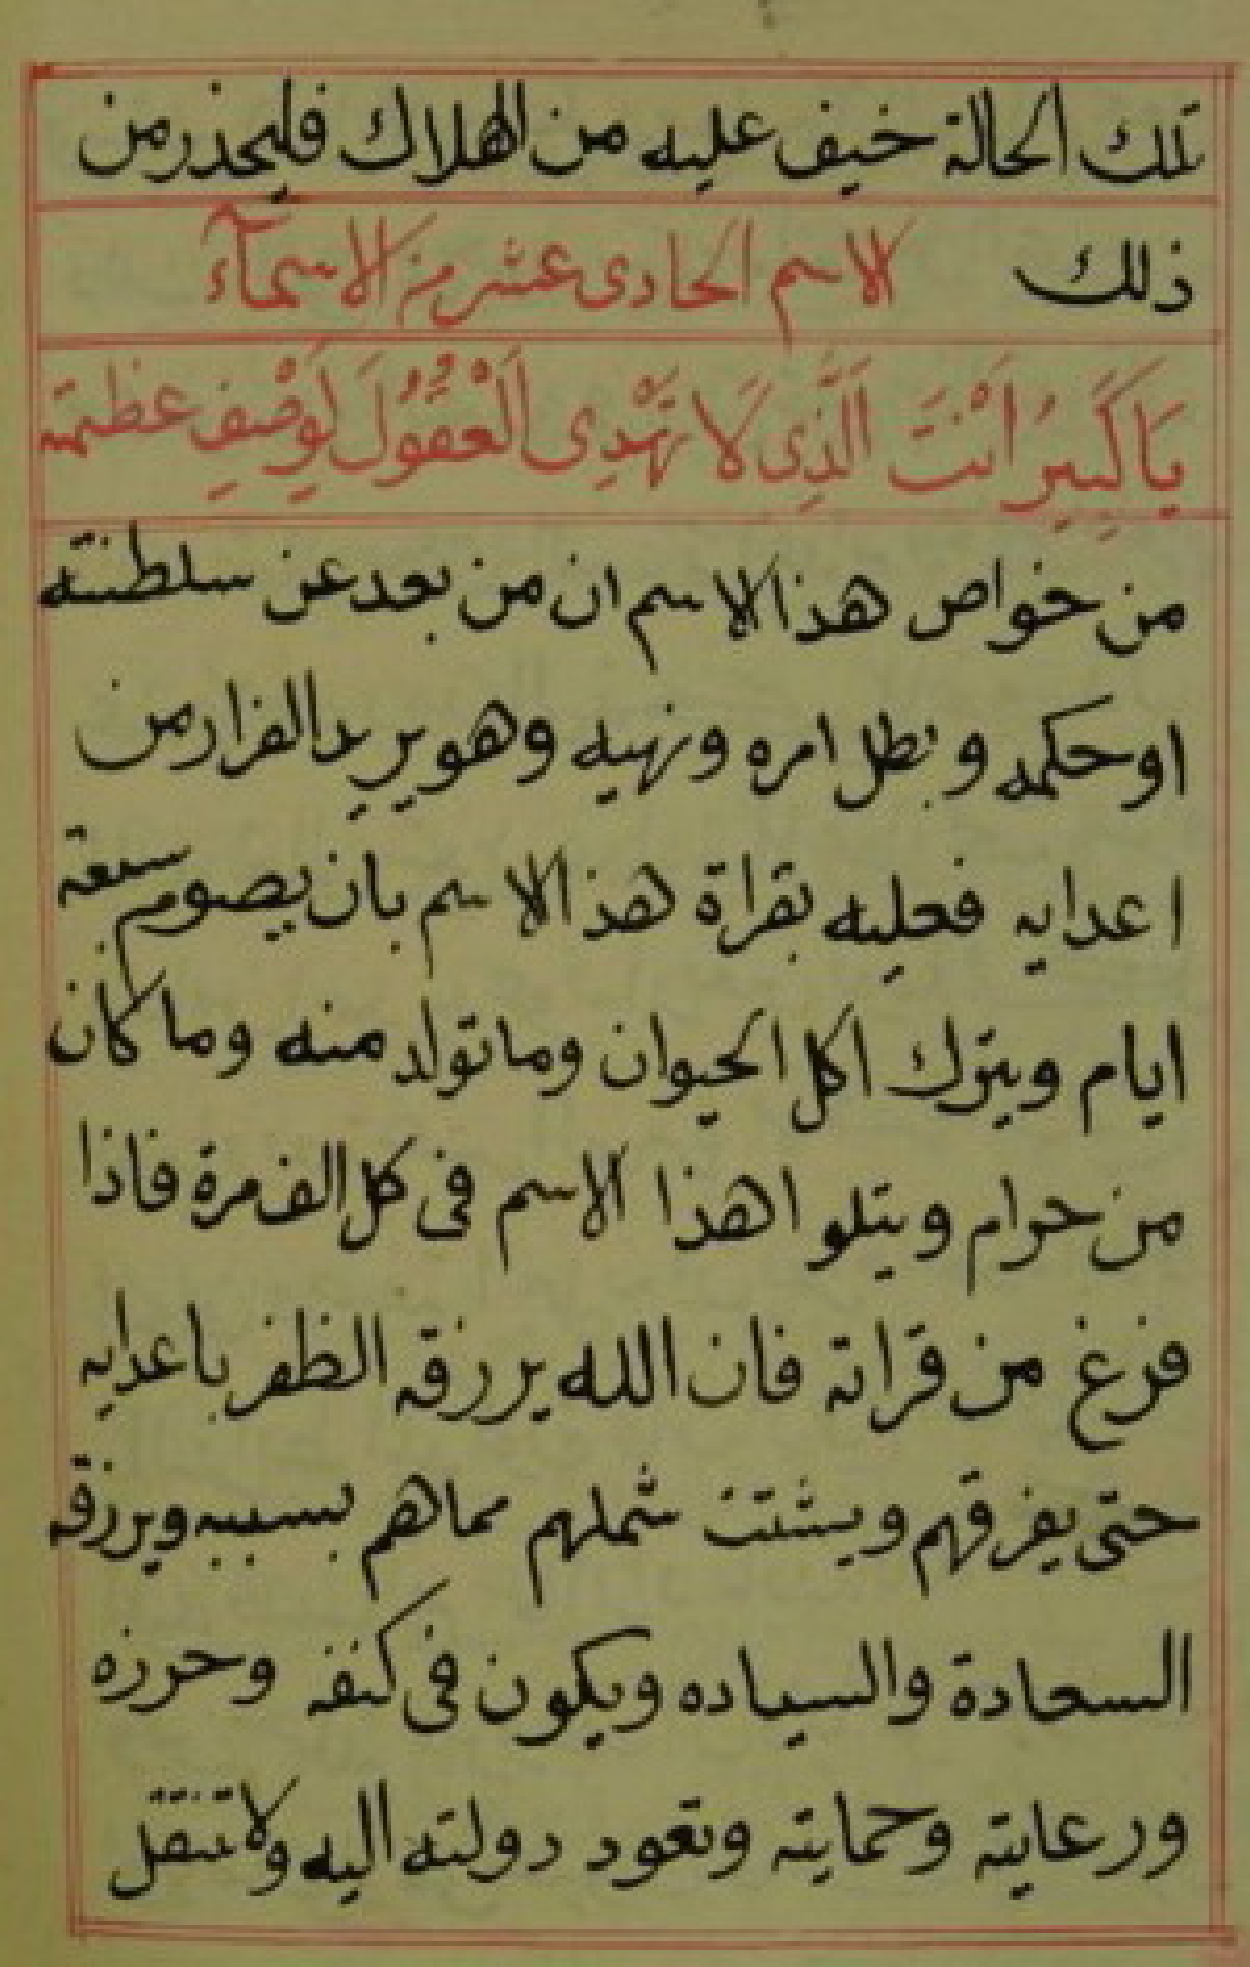 تلك الحالة خيف عليه من الهلاك فليحذر من
ذلك الاسم الحادى عشر من الاسمآء
يَا كَبِيرُ اَنْتَ اَلَّذِى لَا تَهْدِى اَلْعُقُولُ لِوَصْفِ عظمته
من خواص هذا الاسم ان من بعد عن سلطنته
او حكمه وبطل امره ونهيه وهو يريد الفرار من
اعدايه فعليه بقراة هذا الاسم بان يصوم سبعة
ايام ويترك اكل الحيوان وما تولد منه وما كان
من حرام ويتلوا هذا الاسم فى كل الف مرة فاذا
فرغ من قراته فان الله يرزقه الظفر باعدايه
حتى يفرقهم ويشتت شملهم مماهم بسببه ويرزقه
السعادة والسياده ويكون فى كنفه وحرزه
ورعايته وحمايته وتعود دولته اليه ولا تنتقل